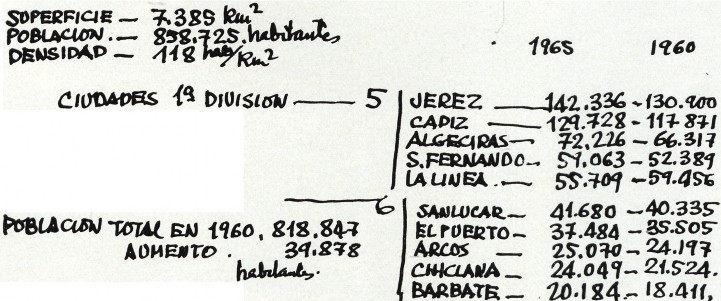 SUPERFICIE — 7.385 Km²
POBLACION — 858.725. habitantes
DENSIDAD — 118 hab/Km²
1965 1960
CIUDADES 1ª DIVISION — 5
JEREZ — 142.336 - 130.900
CADIZ — 129.728 - 117.871
ALGECIRAS — 72.226 - 66.317
S.FERNANDO - 57.063 - 52.389
LA LINEA. — 55.709 - 59.456
6
SANLUCAR — 41.680 - 40.335
EL PUERTO — 37.484 - 35.505
ARCOS — 25.070 - 24.197
CHICLANA — 24.049 - 21.524.
BARBATE — 20.184 - 18.411.
POBLACION TOTAL EN 1960. 818.847
AUMENTO. 39.878
habitantes.